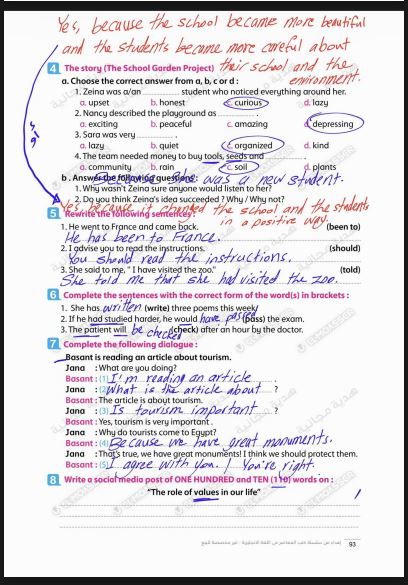 Yes, because the school became more beautiful
and the students became more careful about
their school and the
environment.
4 The story (The School Garden Project)
a. Choose the correct answer from a, b, c or d :
1. Zeina was a/an ............ student who noticed everything around her.
a. upset b. honest c. curious d. lazy
2. Nancy described the playground as ............ .
a. exciting b. peaceful c. amazing d. depressing
3. Sara was very ............ .
a. lazy b. quiet c. organized d. kind
4. The team needed money to buy tools, seeds and ............ .
a. community b. rain c. soil d. plants
b. Answer the following questions:
Because she was a new student.
1. Why wasn't Zeina sure anyone would listen to her?
2. Do you think Zeina's idea succeeded? Why / Why not?
Yes, because it changed the school and the students
in a positive way.
5 Rewrite the following sentences:
1. He went to France and came back. (been to)
He has been to France.
2. I advise you to read the instructions. (should)
You should read the instructions.
3. She said to me, " I have visited the zoo." (told)
She told me that she had visited the zoo.
6 Complete the sentences with the correct form of the word(s) in brackets :
1. She has written (write) three poems this week.
2. If he had studied harder, he would have passed (pass) the exam.
3. The patient will be checked (check) after an hour by the doctor.
7 Complete the following dialogue :
Basant is reading an article about tourism.
Jana : What are you doing?
Basant : (1) I'm reading an article .
Jana : (2) What is the article about ?
Basant : The article is about tourism.
Jana : (3) Is tourism important ?
Basant : Yes, tourism is very important.
Jana : Why do tourists come to Egypt?
Basant : (4) Because we have great monuments.
Jana : That's true, we have great monuments! I think we should protect them.
Basant : (5) I agree with you. / You're right.
8 Write a social media post of ONE HUNDRED and TEN (110) words on :
"The role of values in our life"
93